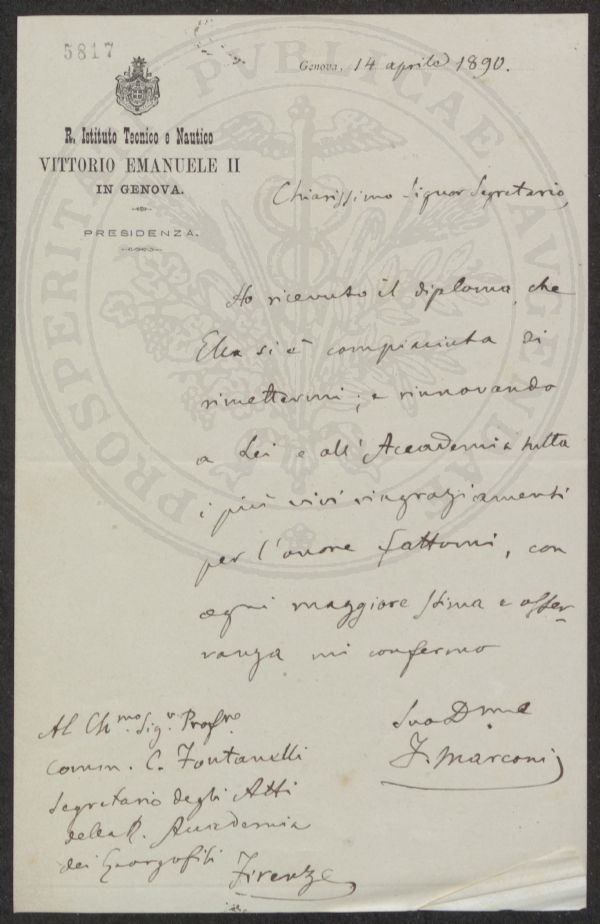 5817
Genova, 14 aprile 1890.
R. Istituto Tecnico e Nautico
VITTORIO EMANUELE II
IN GENOVA.
PRESIDENZA.
Chiarissimo Signor Segretario,
Ho ricevuto il diploma, che
Ella si è compiaciuta di
rimettermi; e rinnovando
a Lei e all'Accademia tutta
i più vivi ringraziamenti
per l'onore fattomi, con
ogni maggiore stima e osser-
vanza mi confermo
Suo Dmo
F. Marconi
Al Chmo. Sigr. Profre
Comm. C. Fontanelli
Segretario degli Atti
della R. Accademia
dei Georgofili
Firenze
PROSPERITATI PVBLICAE AVGENDAE